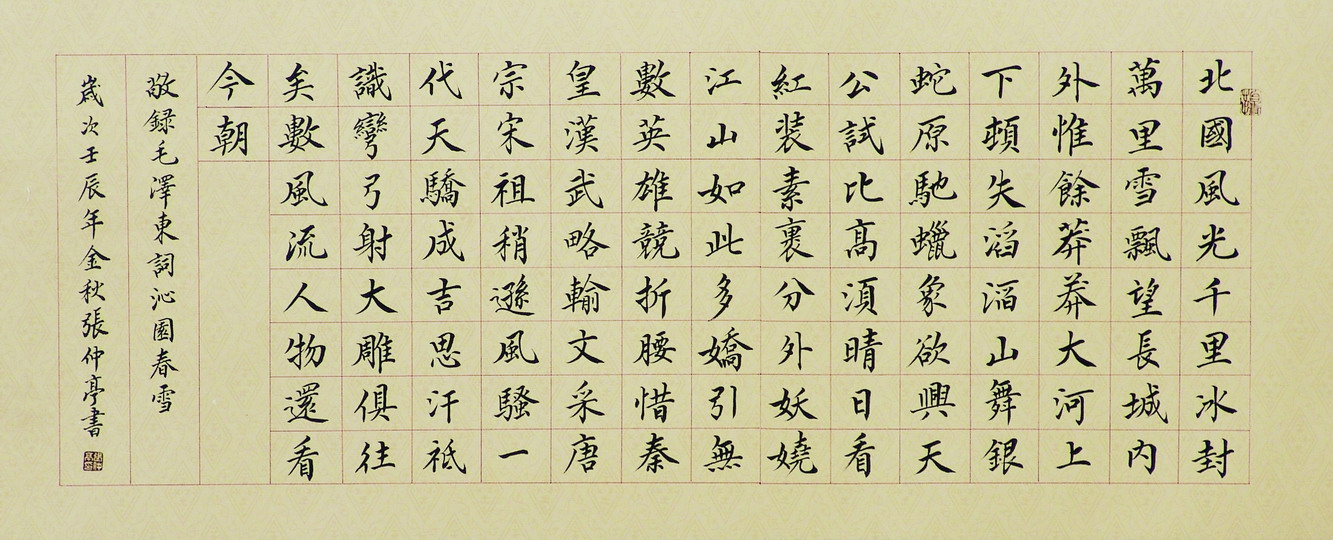 北國風光千里冰封
萬里雪飄望長城內
外惟餘莽莽大河上
下頓失滔滔山舞銀
蛇原馳蠟象欲興天
公試比高須晴日看
紅裝素裹分外妖嬈
江山如此多嬌引無
數英雄競折腰惜秦
皇漢武略輸文采唐
宗宋祖稍遜風騷一
代天驕成吉思汗祗
識彎弓射大雕俱往
矣數風流人物還看
今朝
敬録毛澤東詞沁園春雪
歲次壬辰年金秋張仲亭書